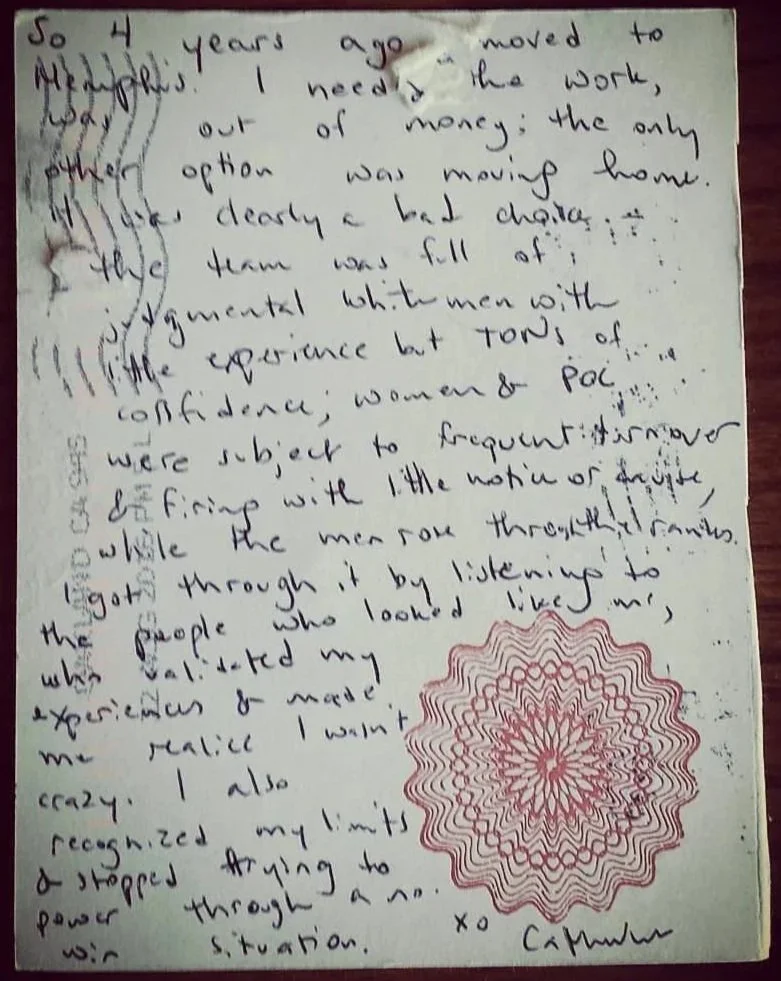 So 4 years ago I moved to
Memphis. I needed the work,
was out of money; the only
other option was moving home.
It was clearly a bad choice.
the team was full of
judgmental white men with
little experience but TONS of
confidence; women & POC
were subject to frequent turnover
& firing with little notice or
while the men rose through the ranks.
I got through it by listening to
the people who looked like me,
who validated my
experiences & made
me realize I wasn't
crazy. I also
recognized my limits
& stopped trying to
power through a no
win situation.
xo
OAKLAND CA 945